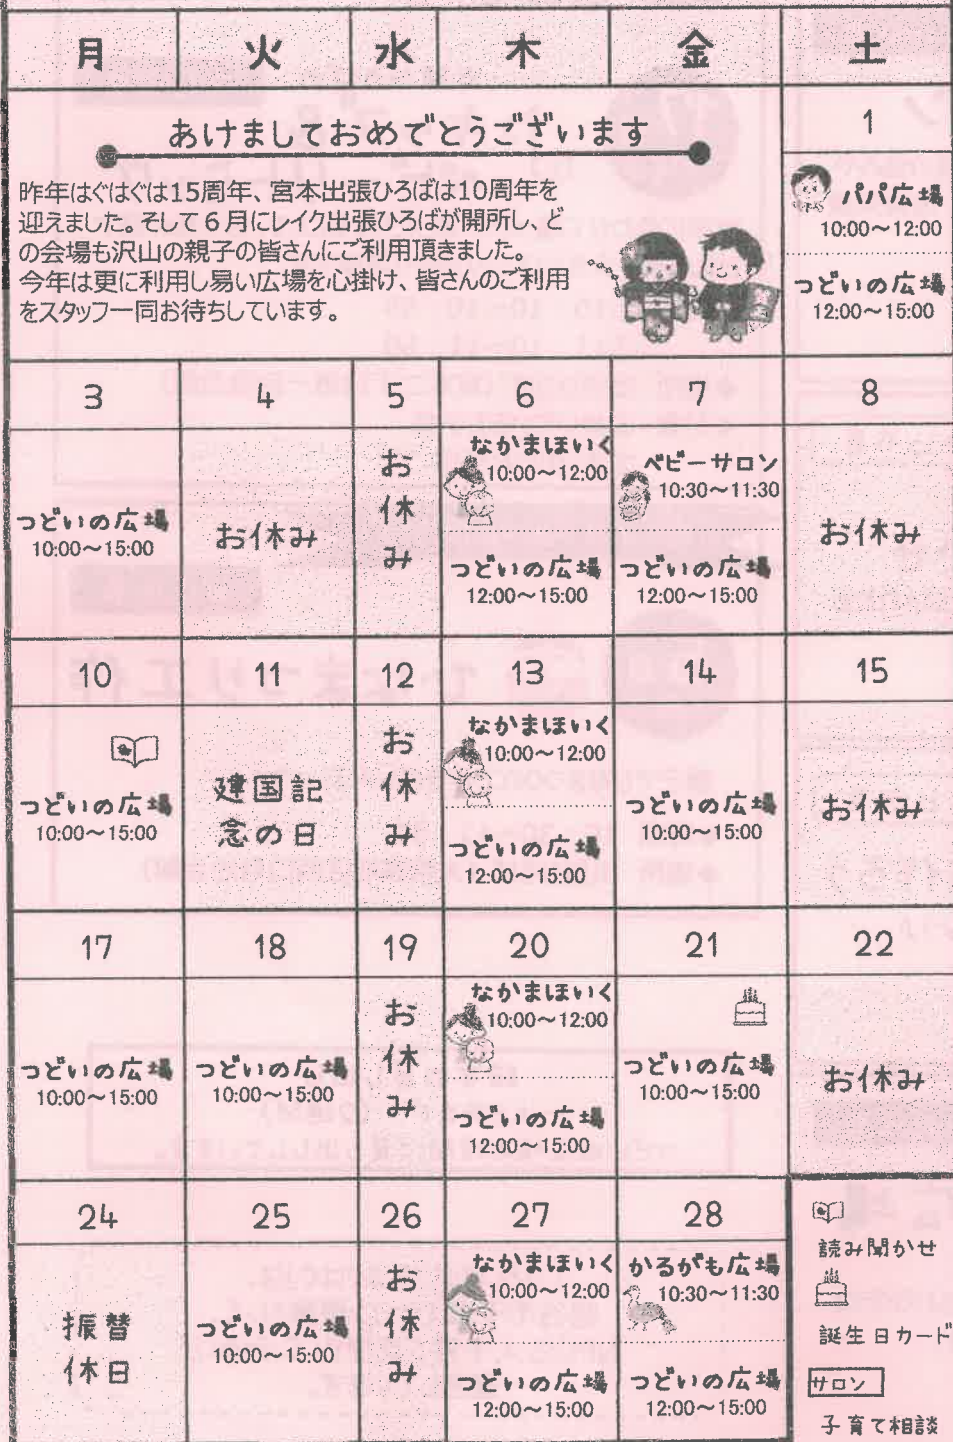 月 火 水 木 金 土
あけましておめでとうございます
昨年はぐはぐは15周年、宮本出張ひろばは10周年を
迎えました。そして6月にレイク出張ひろばが開所し、ど
の会場も沢山の親子の皆さんにご利用頂きました。
今年は更に利用し易い広場を心掛け、皆さんのご利用
をスタッフ一同お待ちしています。
1
パパ広場
10:00～12:00
つどいの広場
12:00～15:00
3
つどいの広場
10:00～15:00
4
お休み
5
お
休
み
6
なかまほいく
10:00～12:00
つどいの広場
12:00～15:00
7
ベビーサロン
10:30～11:30
つどいの広場
12:00～15:00
8
お休み
10
つどいの広場
10:00～15:00
11
建国記
念の日
12
お
休
み
13
なかまほいく
10:00～12:00
つどいの広場
12:00～15:00
14
つどいの広場
10:00～15:00
15
お休み
17
つどいの広場
10:00～15:00
18
つどいの広場
10:00～15:00
19
お
休
み
20
なかまほいく
10:00～12:00
つどいの広場
12:00～15:00
21
つどいの広場
10:00～15:00
22
お休み
24
振替
休日
25
つどいの広場
10:00～15:00
26
お
休
み
27
なかまほいく
10:00～12:00
つどいの広場
12:00～15:00
28
かるがも広場
10:30～11:30
つどいの広場
12:00～15:00
読み聞かせ
誕生日カード
サロン
子育て相談